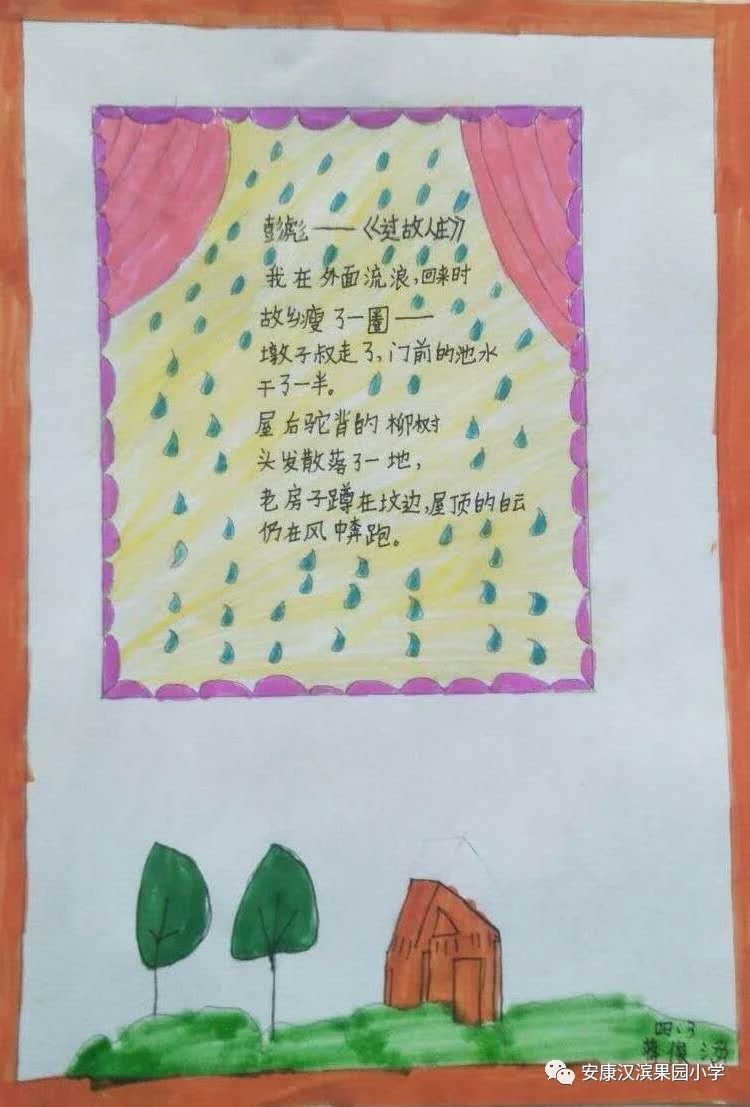 彭彪——《过故人庄》
我在外面流浪,回来时
故乡瘦了一圈——
墩子叔走了,门前的池水
干了一半。
屋后驼背的柳树
头发散落了一地,
老房子蹲在坟边,屋顶的白云
仍在风中奔跑。
四.3
俊
安康汉滨果园小学